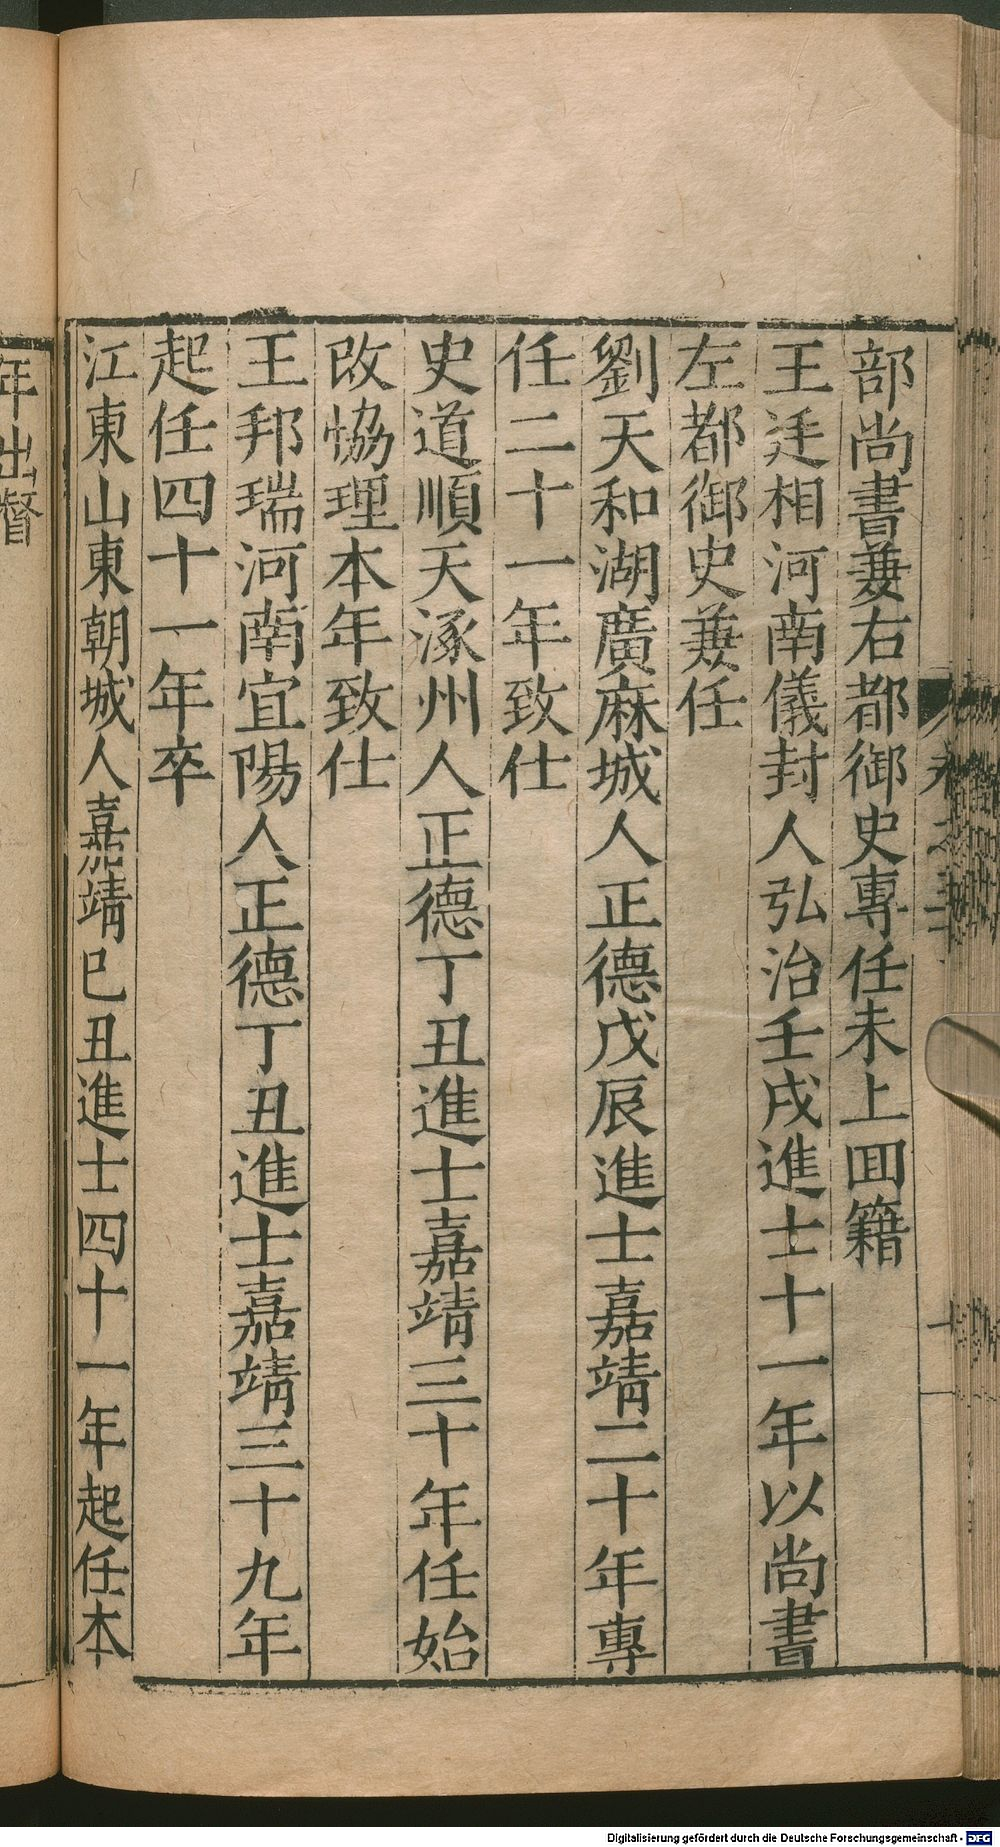 部尚書兼右都御史專任未上回籍
王廷相河南儀封人弘治壬戌進士十一年以尚書
左都御史兼任
劉天和湖廣麻城人正德戊辰進士嘉靖二十年專
任二十一年致仕
史道順天涿州人正德丁丑進士嘉靖三十年任始
改恊理本年致仕
王邦瑞河南宜陽人正德丁丑進士嘉靖三十九年
起任四十一年卒
江東山東朝城人嘉靖巳丑進士四十一年起任本
年出督
Digitalisierung gefördert durch die Deutsche Forschungsgemeinschaft - DFG